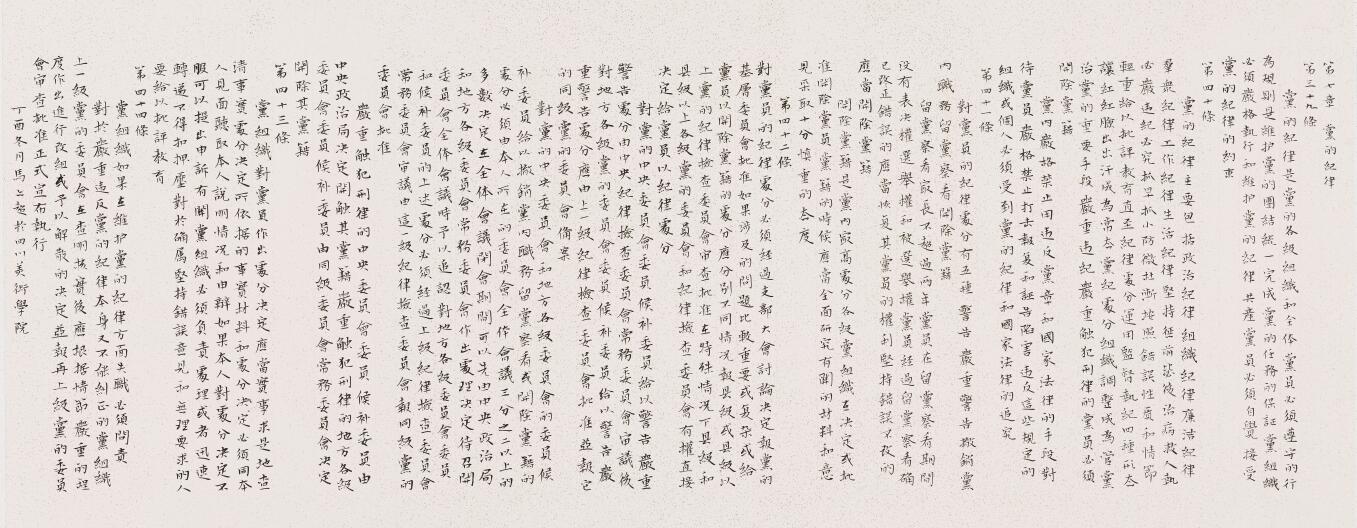 第七章 黨的紀律
第三十九條
黨的紀律是黨的各級組織和全體黨員必須遵守的行
為規則是維护黨的團結統一完成黨的任務的保証黨組織
必須嚴格執行和維护黨的紀律共產黨員必須自覺接受
黨的紀律的約束
第四十條
黨的紀律主要包括政治紀律組織紀律廉洁紀律
羣眾紀律工作紀律生活紀律堅持惩前毖後治病救人執
必嚴違紀必究抓早抓小防微杜漸按照錯誤性质和情節
輕重給以批評教育直至紀律處分運用監督執紀四種形态
讓紅紅臉出出汗成為常态黨紀處分組織調整成為管黨
治黨的重要手段嚴重違紀嚴重触犯刑律的黨員必須
開除黨籍
黨內嚴格禁止用違反黨章和國家法律的手段對
待黨員嚴格禁止打击報复和誣告陷害違反這些規定的
組織或個人必須受到黨的紀律和國家法律的追究
第四十一條
對黨員的紀律處分有五種警告嚴重警告撤銷黨
內職務留黨察看開除黨籍
留黨察看最長不超過两年黨員在留黨察看期間
没有表决權選舉權和被選舉權黨員經過留黨察看确
已改正錯誤的應當恢复其黨員的權利堅持錯誤不改的
應當開除黨籍
開除黨籍是黨內最高處分各級黨組織在决定或批
准開除黨員黨籍的時候應當全面研究有関的材料和意
見采取十分慎重的态度
第四十二條
對黨員的紀律處分必須經過支部大會討論决定報黨的
基層委員會批准如果涉及的問題比較重要或复杂或給
黨員以開除黨籍的處分應分別不同情况報县級或县級以
上黨的紀律檢查委員會審查批准在特殊情况下县級和
县級以上各級黨的委員會和紀律檢查委員會有權直接
决定給黨員以紀律處分
對黨的中央委員會委員候补委員給以警告嚴重
警告處分由中央紀律檢查委員會常務委員會審議後
對地方各級黨的委員會委員候补委員給以警告嚴
重警告處分應由上一級紀律檢查委員會批准並報它
的同級黨的委員會俻案
對黨的中央委員會和地方各級委員會的委員候
补委員給以撤銷黨內職務留黨察看或開除黨籍的
處分必須由本人所在的委員會全体會議三分之二以上的
多數决定在全体會議閉會期間可以先由中央政治局
和地方各級委員會常務委員會作出處理决定待召開
委員會全体會議時予以追認對地方各級委員會委員
和候补委員的上述處分必須經過上級紀律檢查委員會
常務委員會審議由這一級紀律檢查委員會報同級黨的
委員會批准
嚴重触犯刑律的中央委員會委員候补委員由
中央政治局决定開除其黨籍嚴重触犯刑律的地方各級
委員會委員候补委員由同級委員會常務委員會决定
開除其黨籍
第四十三條
黨組織對黨員作出處分决定應當實事求是地查
清事實處分决定所依据的事實材料和處分决定必須同本
人見面聽取本人說明情况和申辩如果本人對處分决定不
服可以提出申訴有関黨組織必須負責處理或者迅速
轉遞不得扣押壓對於确属堅持錯誤意見和無理要求的人
要給以批評教育
第四十四條
黨組織如果在維护黨的紀律方面失職必須問責
對於嚴重違反黨的紀律本身又不能糾正的黨組織
上一級黨的委員會在查明核實後應根据情節嚴重的程
度作出進行改組或予以解散的决定並報再上一級黨的委員
會審查批准正式宣布執行
丁酉冬月馬上超於四川美術學院